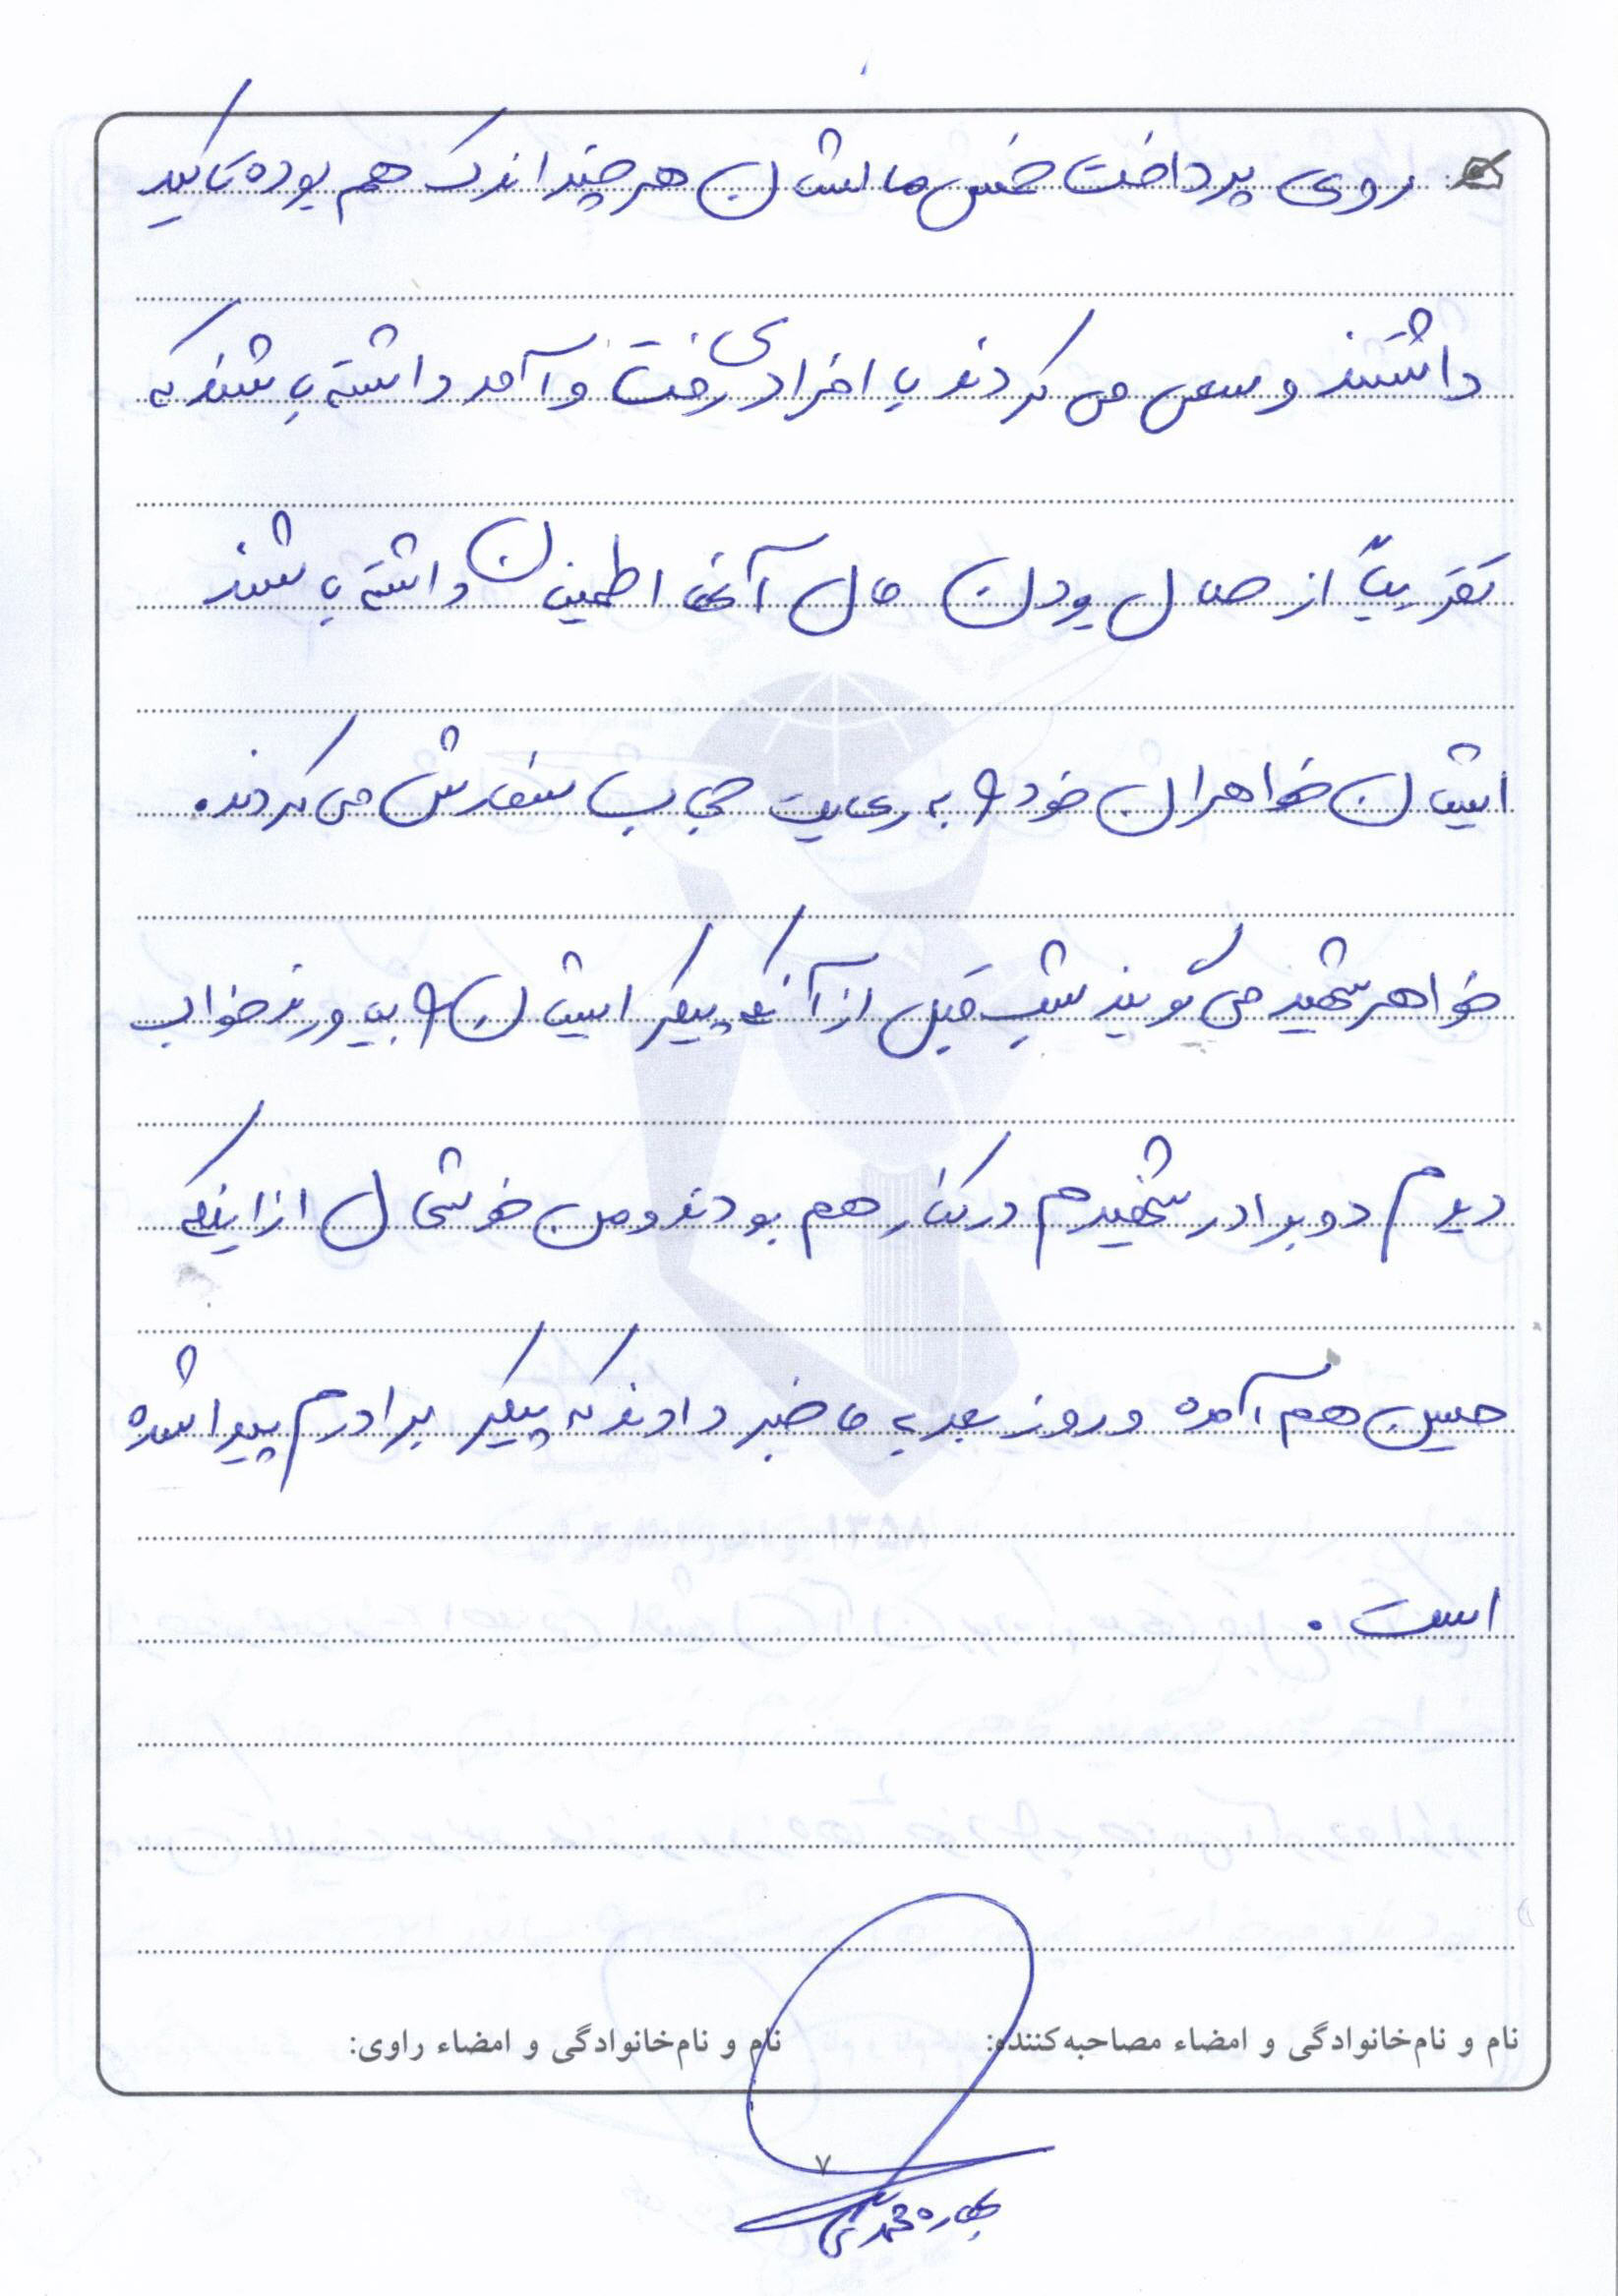 روی پرداخت خمس مالشان هر چند اندک هم بوده تاکید
داشتند و سعی می کردند با افرادی رفت و آمد داشته باشند که
تقریباً از حلال بودن مال آنها اطمینان داشته باشند
ایشان خواهران خود را به رعایت حجاب سفارش می کردند.
خواهر شهید می گویند شب قبل از آنکه پیکر ایشان را بیاورند خواب
دیدم دو برادر شهیدم در کنار هم بودند و من خوشحال از اینکه
حسین هم آمده و روز بعد به ما خبر دادند که پیکر برادرم پیدا شده
است.
نام و نام‌خانوادگی و امضاء مصاحبه‌کننده:
نام و نام‌خانوادگی و امضاء راوی:
۷